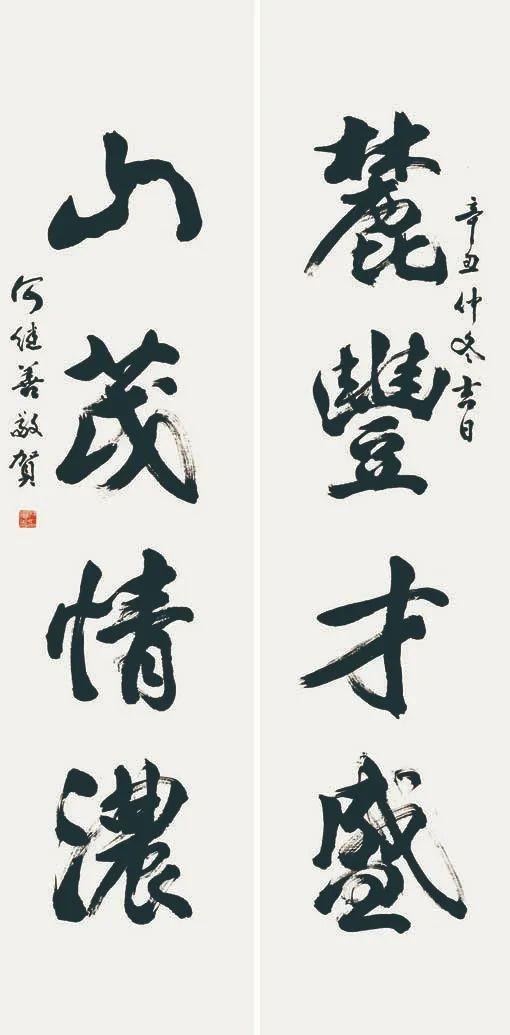 辛丑仲冬吉日
麓豐才盛
山茂情濃
何继善敬賀